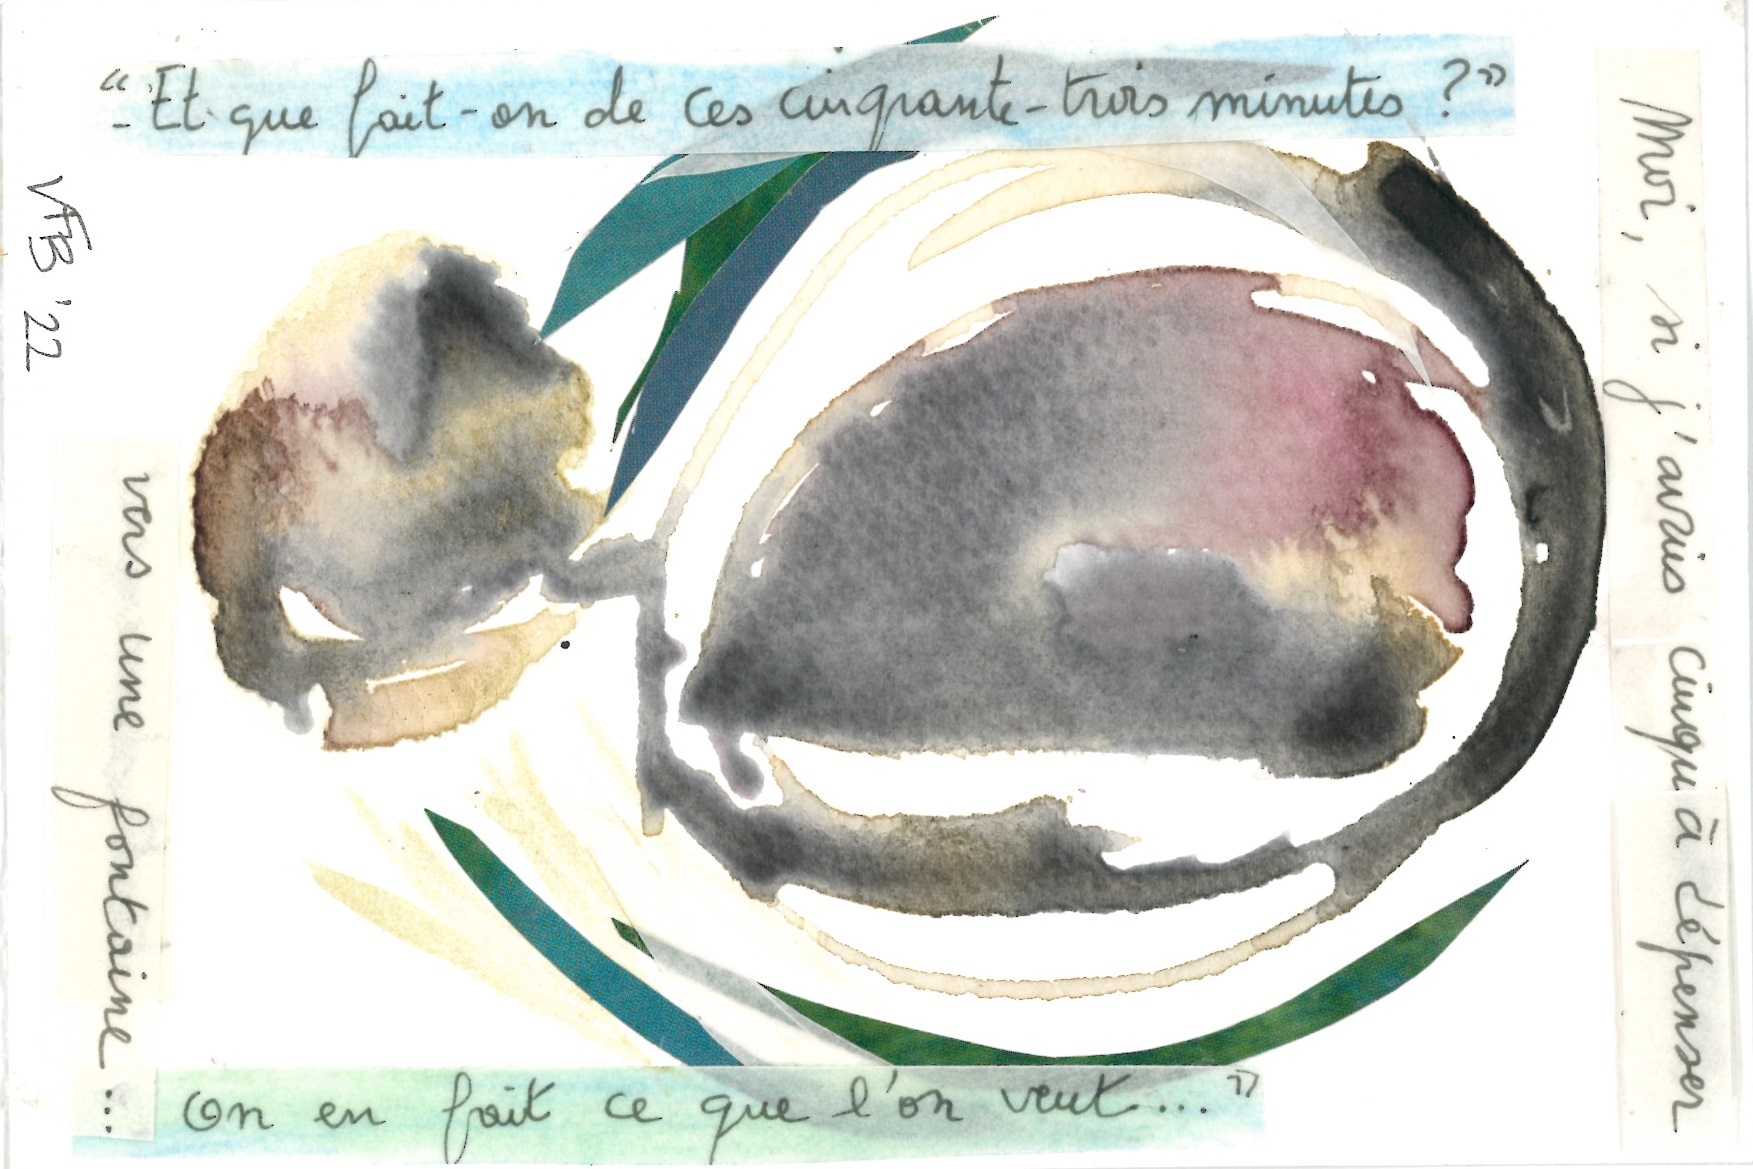 “- Et que fait-on de ces cinqrante-trois minutes ?”
On en fait ce que l'on veut...”
Moi, si j'avais cinqu à dépenser
vers une fontaine...
VFB '22